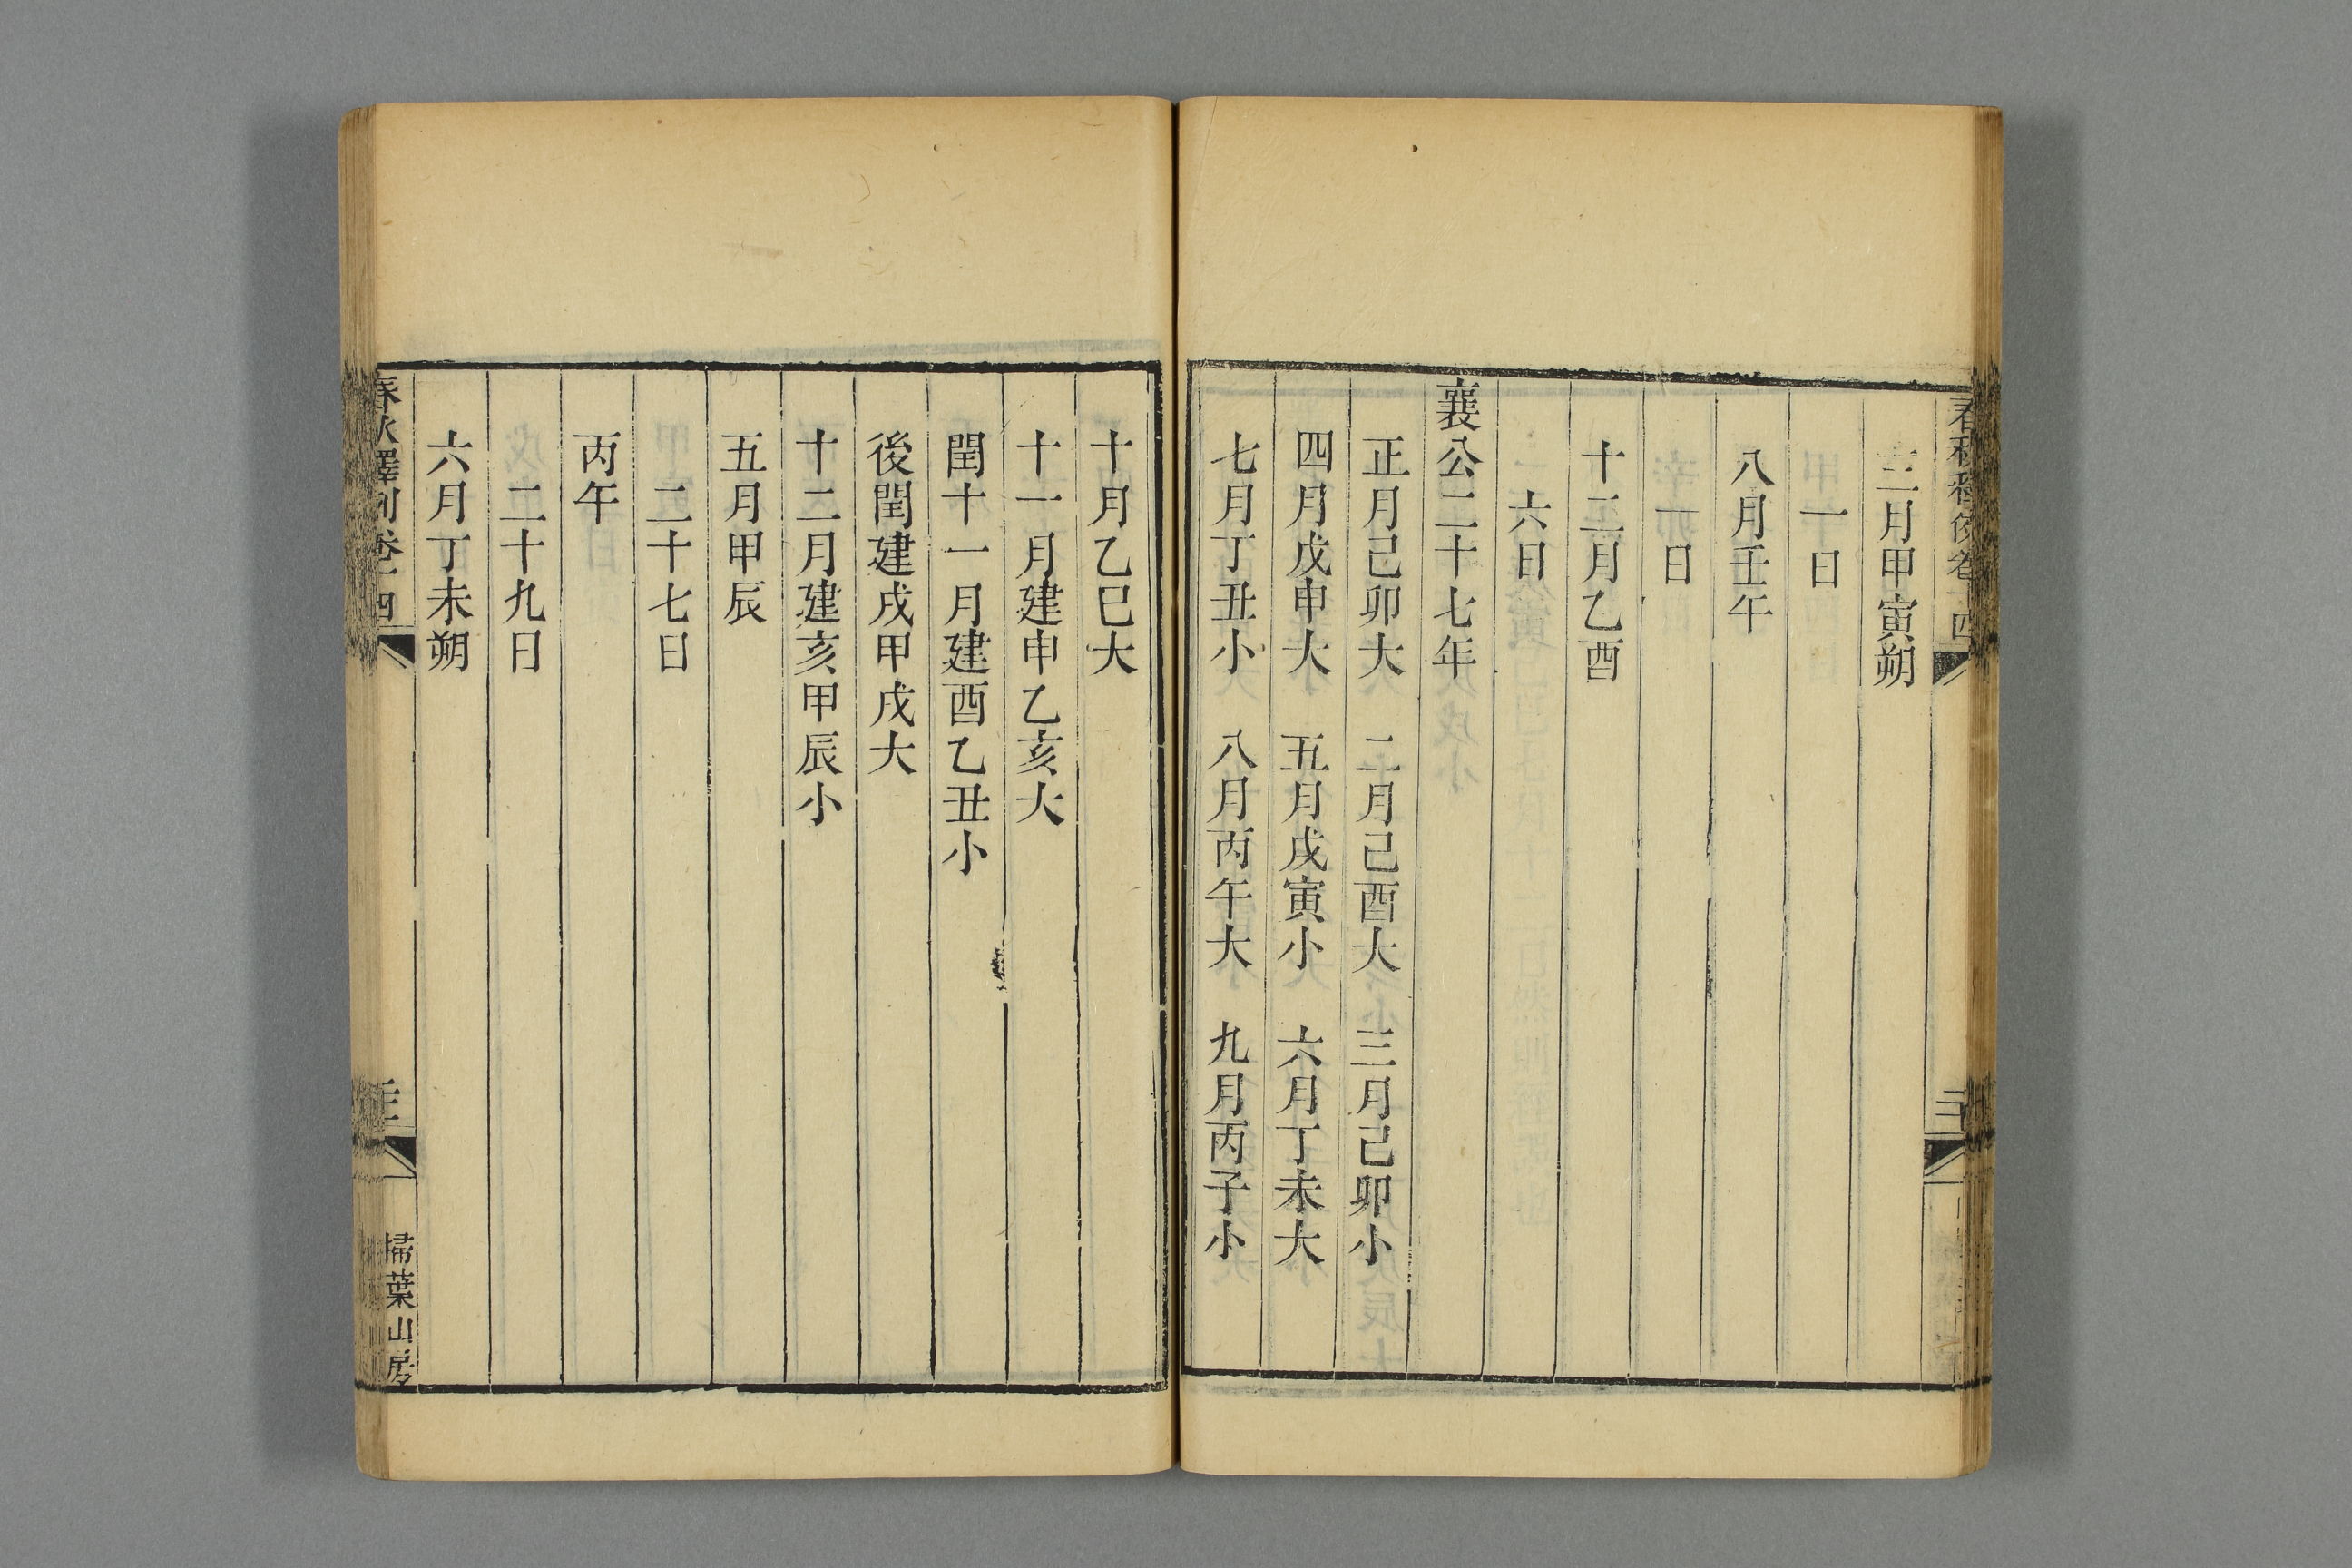 春秋釋例卷十四
三月甲寅朔
一日
八月壬午
一日
十二月乙酉
六日
襄公二十七年
正月己卯大　二月己酉大　三月己卯小
四月戊申大　五月戊寅小　六月丁未大
七月丁丑小　八月丙午大　九月丙子小
十月乙巳大
十一月建申乙亥大
閏十一月建酉乙丑小
後閏建戌甲戌大
十二月建亥甲辰小
五月甲辰
二十七日
丙午
二十九日
六月丁未朔
春秋釋例卷十四
掃葉山房